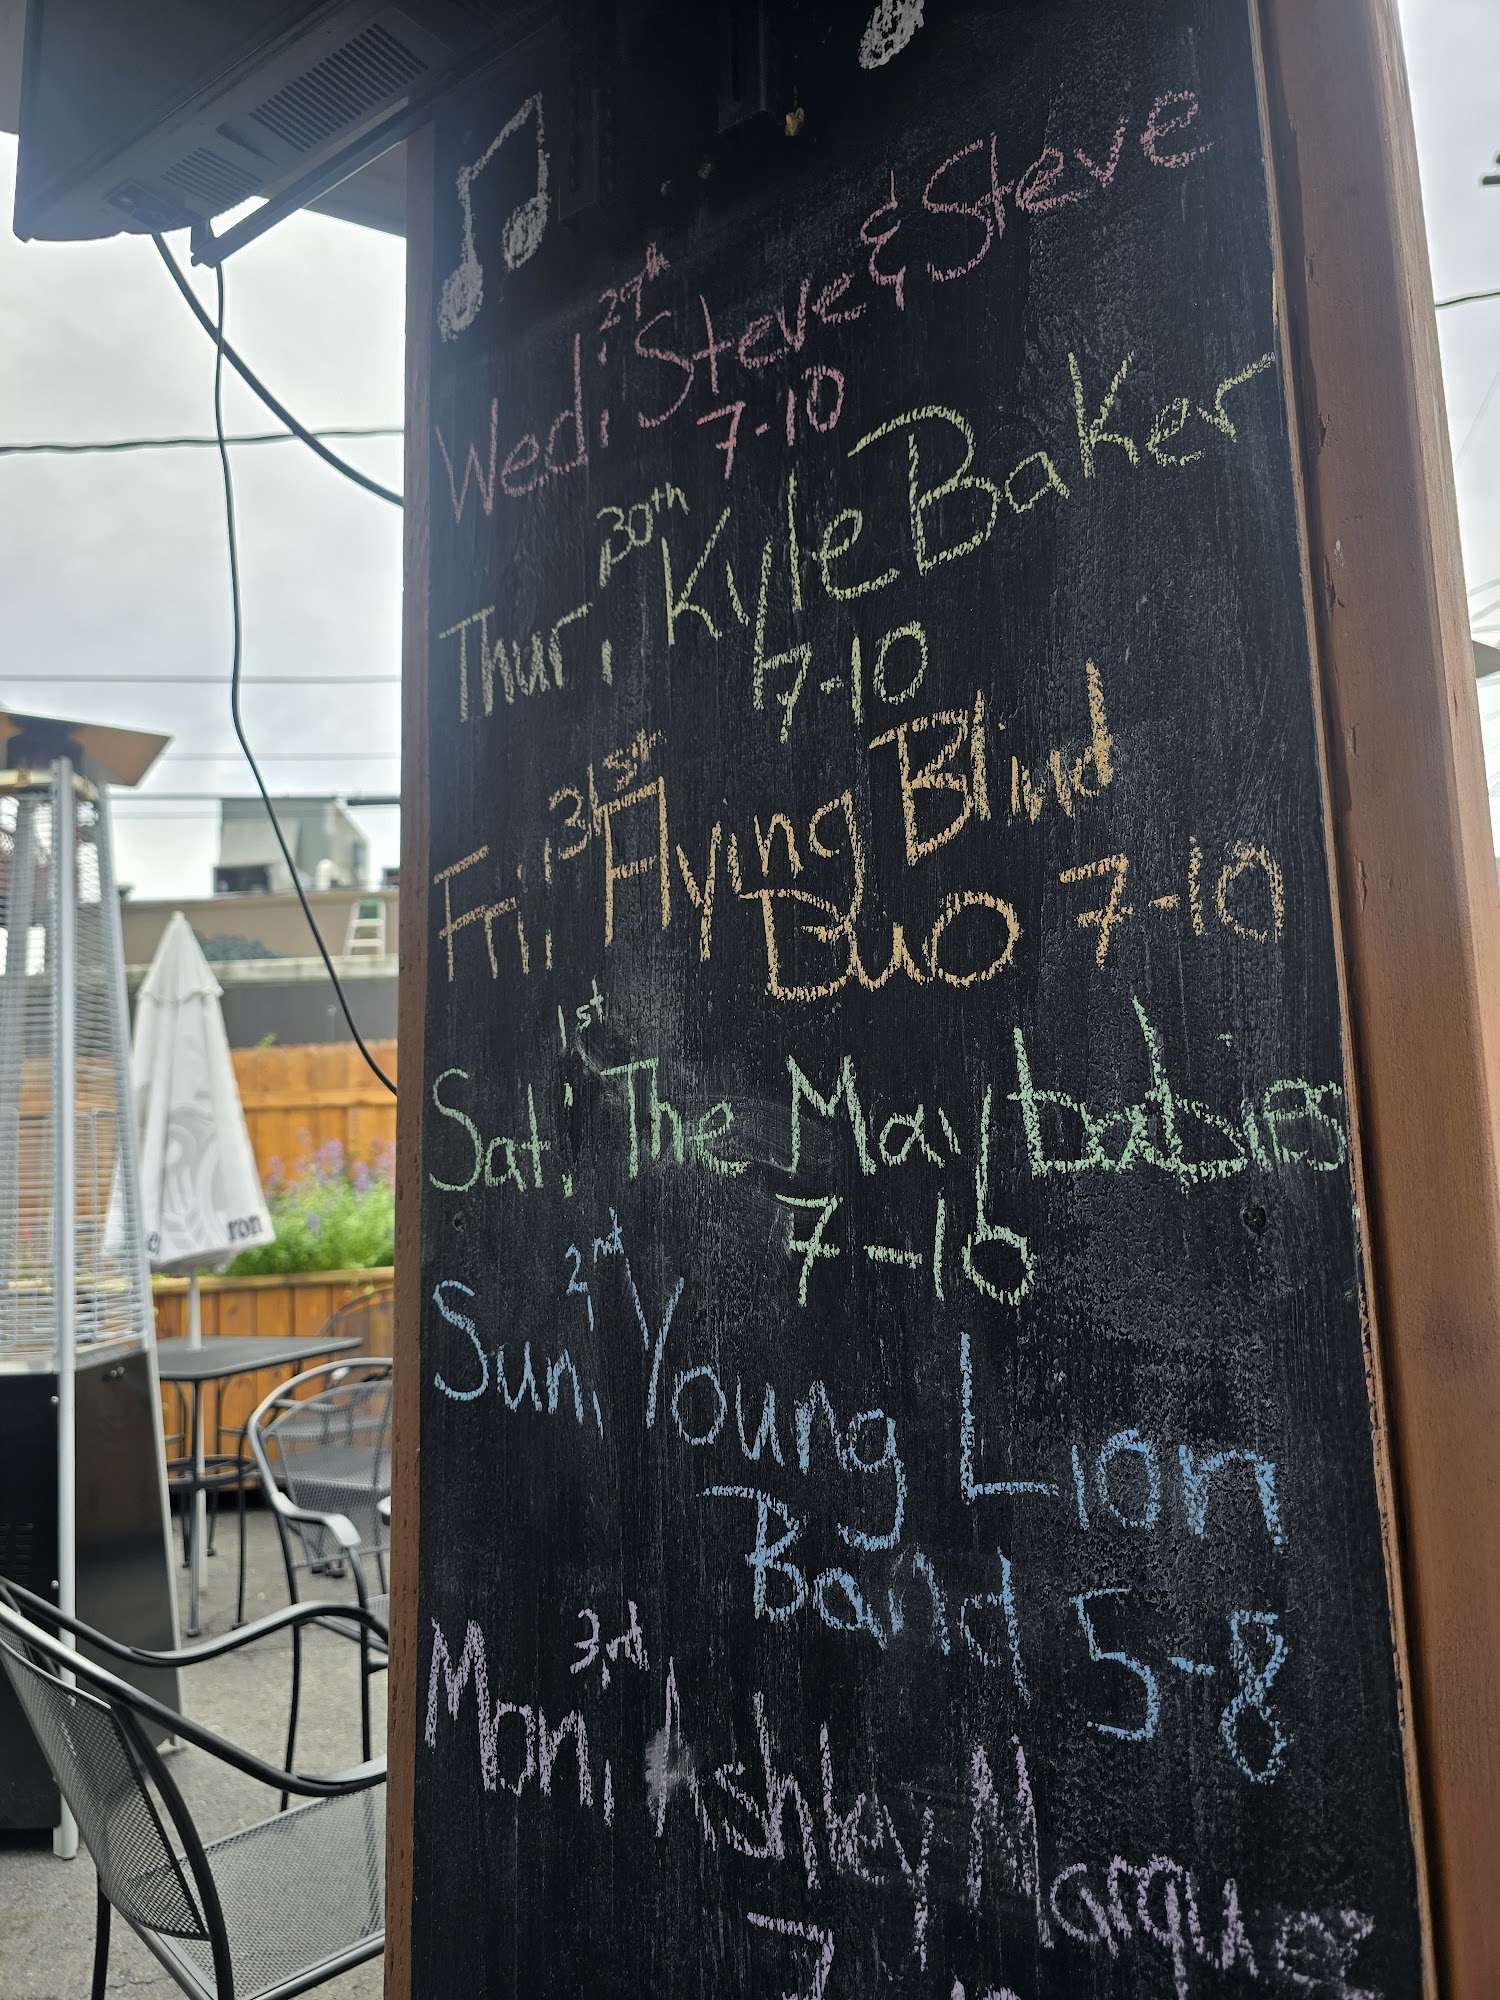 Wed, 29th Steve & Steve
7-10
Thur, 30th Kyle Baker
7-10
Fri, 31st Flying Blind
Duo 7-10
Sat, 1st The Maybabies
7-10
Sun, 2nd Young Lion
Band 5-8
Mon, 3rd Ashley Marquez
7
ron